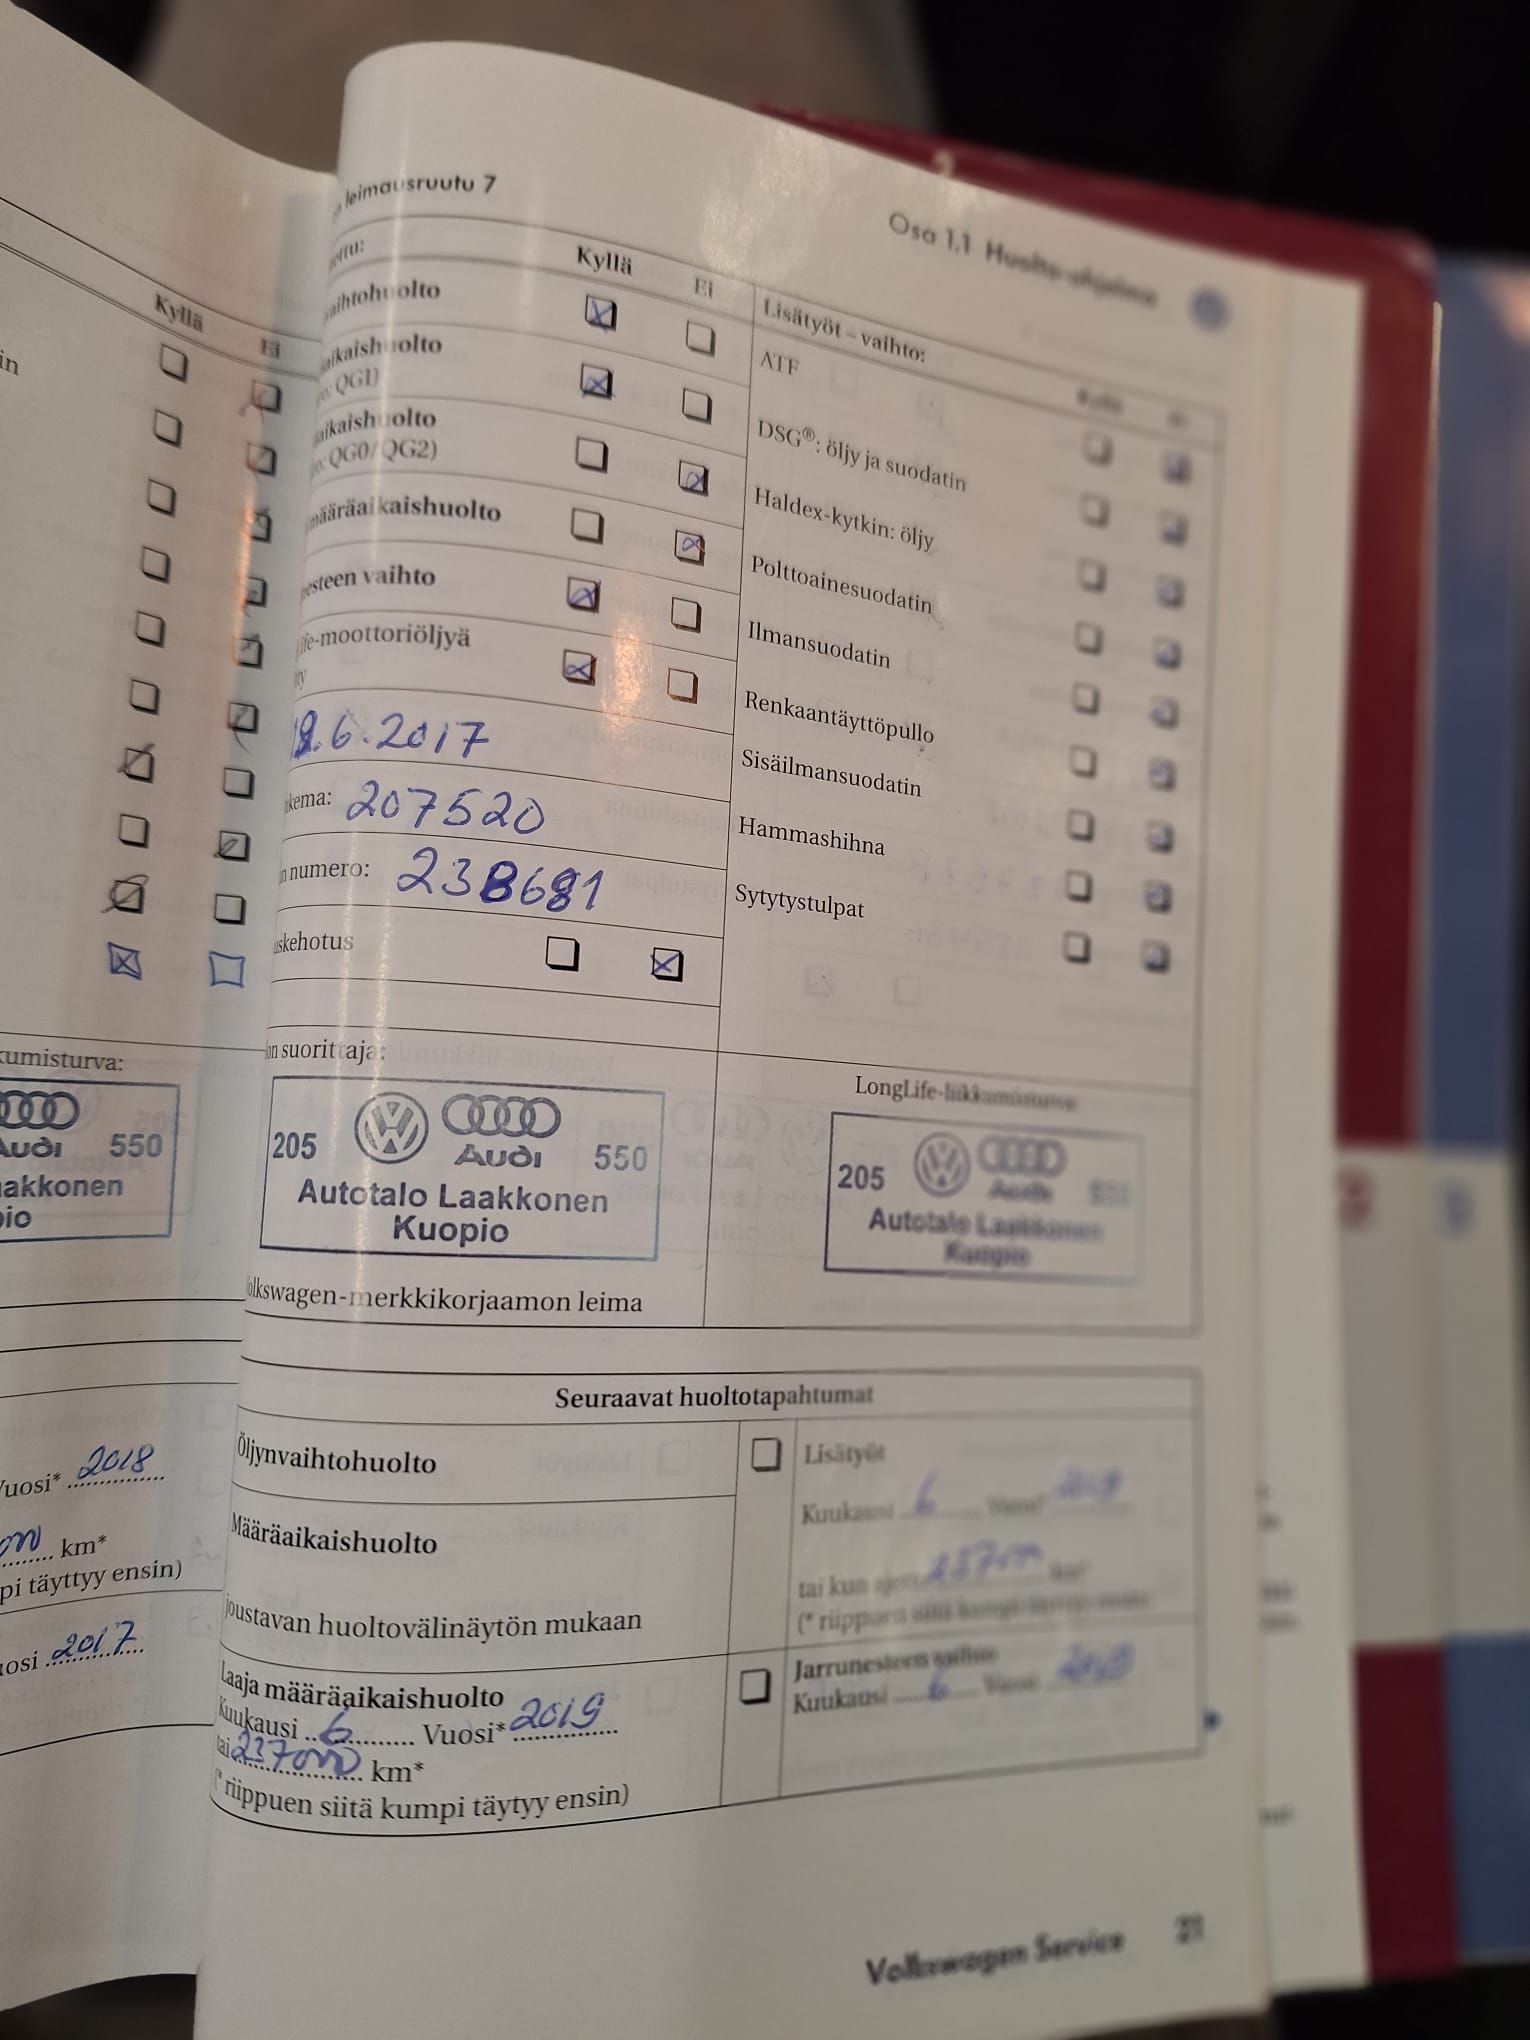 leimausruutu 7
Osa 1.1 Huolto-ohjelma
Kyllä
Ei
in
ettu:
Kyllä
Ei
aihtohuolto
aikaishuolto
o: QG1)
aikaishuolto
o: QG0/QG2)
määräaikaishuolto
esteen vaihto
ife-moottoriöljyä
.6.2017
kema: 207520
n numero: 238681
uskehotus
Lisätyöt – vaihto:
Kyllä
Ei
ATF
DSG®: öljy ja suodatin
Haldex-kytkin: öljy
Polttoainesuodatin
Ilmansuodatin
Renkaantäyttöpullo
Sisäilmansuodatin
Hammashihna
Sytytystulpat
kumisturva:
Audi 550
aakkonen
pio
on suorittaja:
205 Audi 550
Autotalo Laakkonen
Kuopio
olkswagen-merkkikorjaamon leima
LongLife-liikkumisturva
205 Audi 550
Autotalo Laakkonen
Kuopio
Vuosi* 2018
km*
pi täyttyy ensin)
uosi 2017
Seuraavat huoltotapahtumat
Öljynvaihtohuolto
Määräaikaishuolto
joustavan huoltovälinäytön mukaan
Laaja määräaikaishuolto
Kuukausi 6 Vuosi* 2019
tai 237000 km*
(* riippuen siitä kumpi täytyy ensin)
Lisätyöt
Kuukausi 6 Vuosi* 2019
tai kun ajettu 237000 km*
(* riippuen siitä kumpi täytyy ensin)
Jarrunesteen vaihto
Kuukausi 6 Vuosi 2019
Volkswagen Service 21